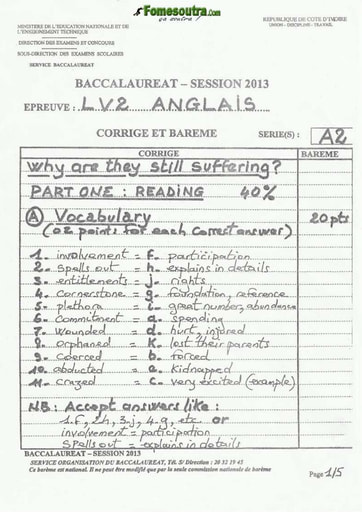 Fomesoutra.com
ça soutra !
MINISTERE DE L'EDUCATION NATIONALE ET DE
L'ENSEIGNEMENT TECHNIQUE
DIRECTION DES EXAMENS ET CONCOURS
SOUS-DIRECTION DES EXAMENS SCOLAIRES
SERVICE BACCALAUREAT
REPUBLIQUE DE COTE D'IVOIRE
UNION - DISCIPLINE - TRAVAIL
BACCALAUREAT – SESSION 2013
EPREUVE : LV2 ANGLAIS
CORRIGE ET BAREME SERIE(S) : A2
CORRIGE BAREME
Why are they still suffering?
PART ONE : READING 40%
(A) Vocabulary 20 pts
(02 points for each correct answer)
1- involvement = f. participation
2- spells out = h. explains in details
3- entitlements = j. rights
4- cornerstone = g. foundation, reference
5- plethora = i. great number, abundance
6- commitment = d. spending
7- wounded = d. hurt, injured
8- orphaned = k. lost their parents
9- coerced = b. forced
10- abducted = e. kidnapped
11- crazed = c. very excited (example)
NB : Accept answers like :
1.f, 2h, 3.j, 4.g, etc. or
involvement = participation
Spells out = explains in details
BACCALAUREAT – SESSION 2013
SERVICE ORGANISATION DU BACCALAUREAT, Tél. S/ Direction : 20 32 19 45
Ce barème est national. Il ne peut être modifié que par la seule commission nationale de barème
Page 1/5